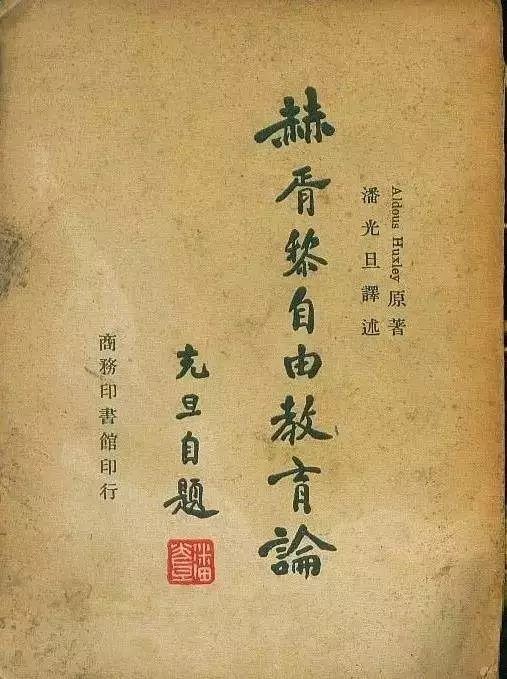 Aldous Huxley 原著
潘光旦譯述
赫胥黎自由教育論
光旦自題
潘光旦
商務印書館印行